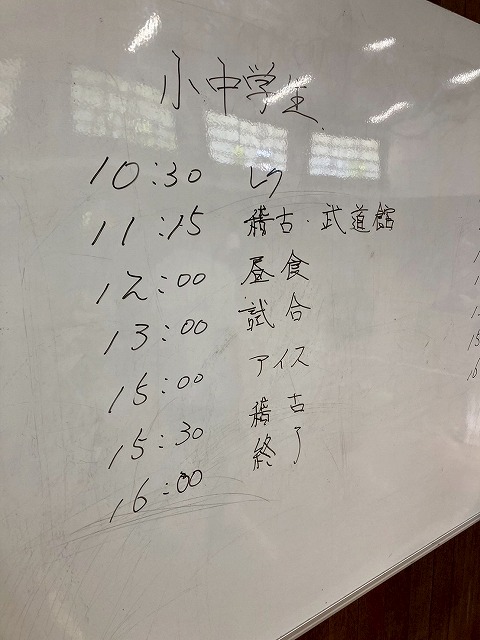 小中学生
10:30 レク
11:15 稽古・武道館
12:00 昼食
13:00 試合
15:00 アイス
15:30 稽古
16:00 終了